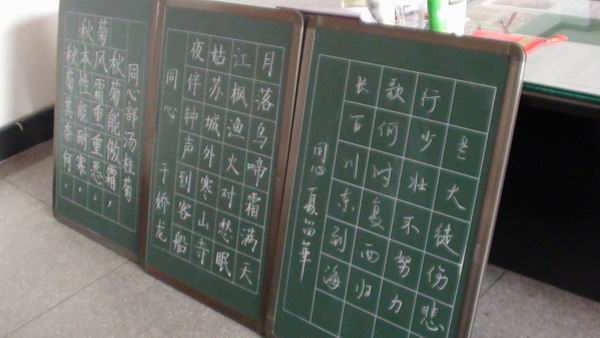 秋菊
同心部汤桂菊
秋菊能傲霜,
风霜重重恶,
本性能耐寒,
秋菊其奈何,
月落乌啼霜满天
江枫渔火对愁眠
姑苏城外寒山寺
夜伴钟声到客船
同心 于娇龙
长歌行
百川东到海
何时复西归
少壮不努力
老大徒伤悲
同心 夏 华